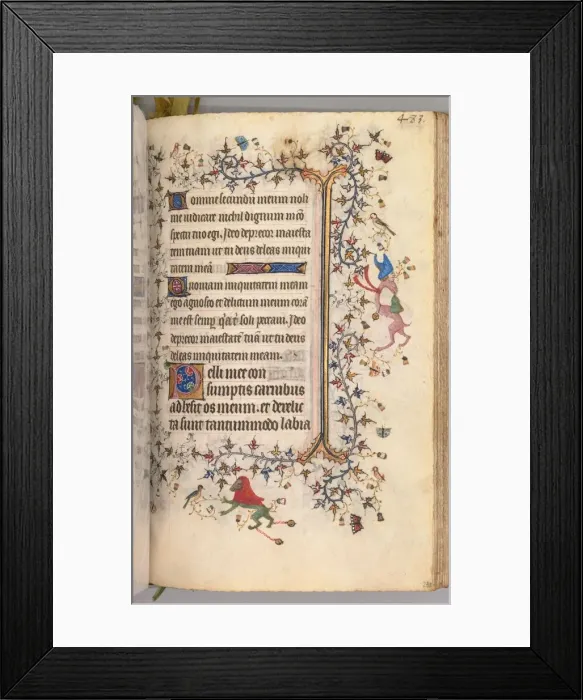 433.
Domine secundu meum noli
me iudicare nichil dignum in co
spectu tuo egi. Ideo deprecor maiesta
tem tuam ut tu deus deleas iniqui
tatem mea
Quoniam iniquitatem meam
ego agnosco et delictum meum cora
me est semp soli peccaui. Ideo
deprecor maiestate tua ut tu deus
deleas iniquitatem meam.
Pelli mee con
sumptis carnibus
adhesit os meum. et derelic
ta sunt tantummodo labia